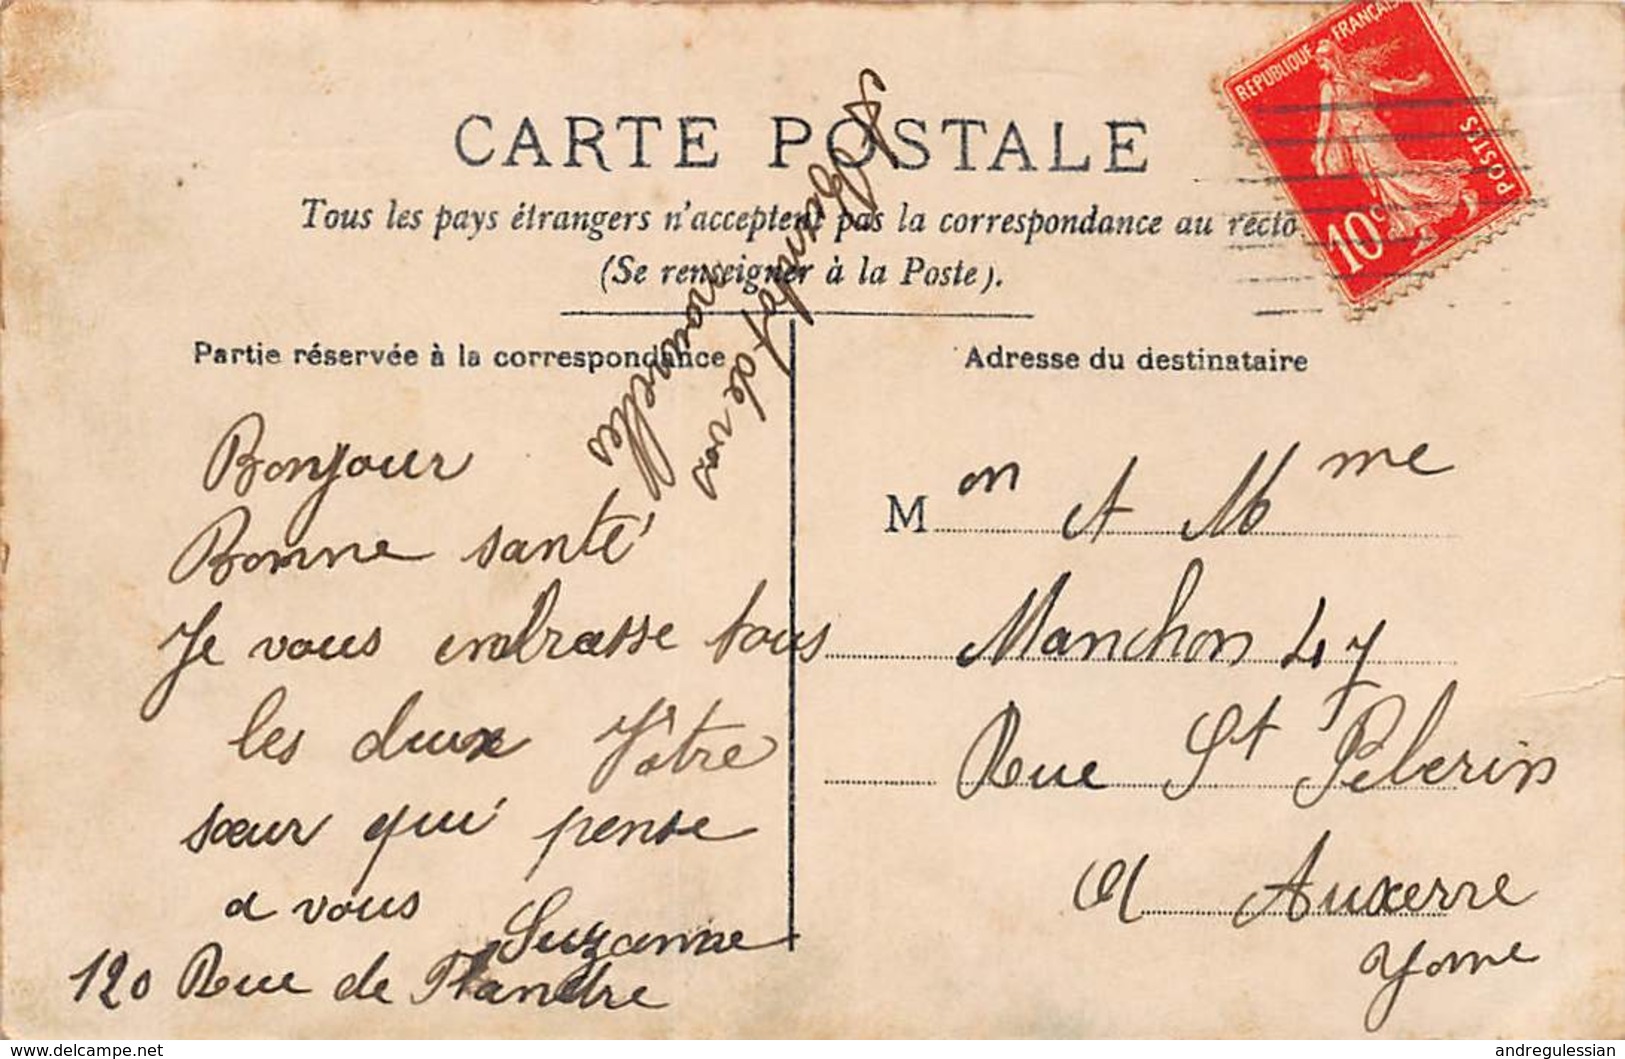 CARTE POSTALE
Tous les pays étrangers n'acceptent pas la correspondance au recto
(Se renseigner à la Poste).
REPUBLIQUE FRANÇAISE
POSTES
10c
Partie réservée à la correspondance
Adresse du destinataire
A Bientot de vos
nouvelles
Bonjour
Bonne santé
Je vous embrasse tous
les deux Vôtre
sœur qui pense
a vous
Suzanne
120 Rue de Flandre
Mon et Mme
Manchon 47
Rue St Pelerin
a Auxerre
Yonne
delcampe.net
andregulessian